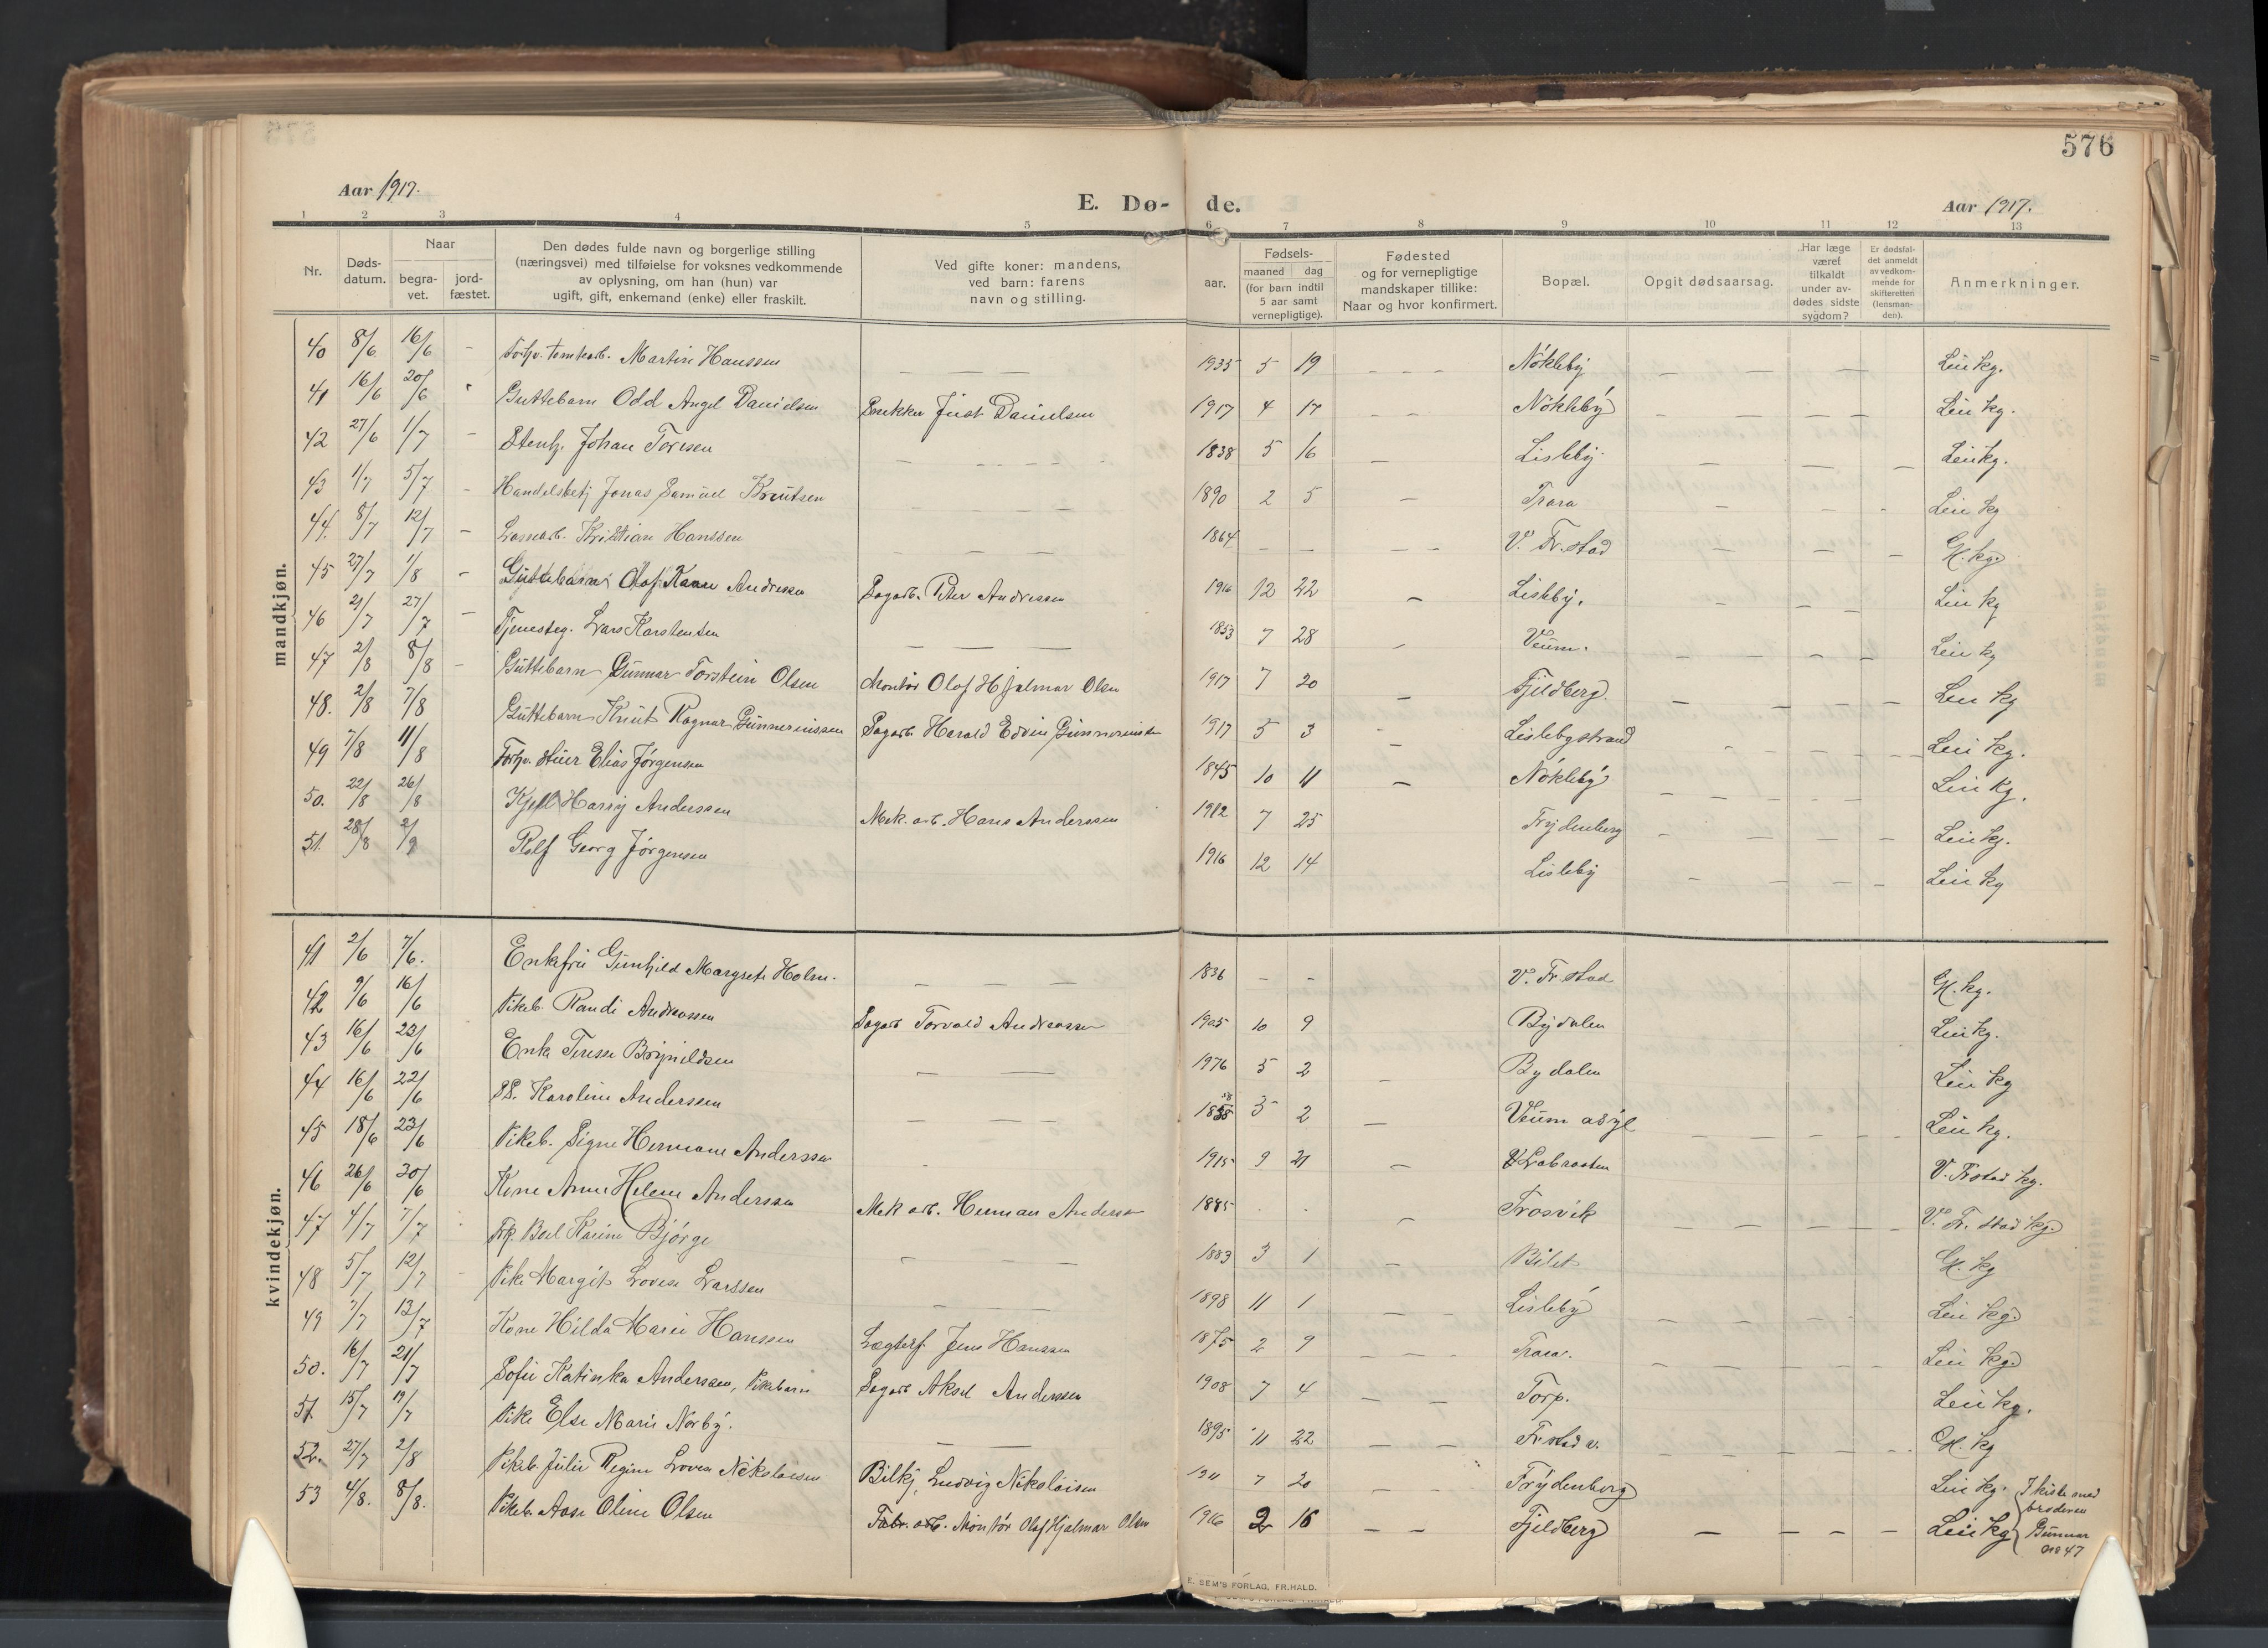 576
Aar 1917.
E. Dø- de.
Aar 1917.
1 2 3 4 5 6 7 8 9 10 11 12 13
Nr.
Døds-
datum.
Naar
begra-
vet.
jord-
fæstet.
Den dødes fulde navn og borgerlige stilling
(næringsvei) med tilføielse for voksnes vedkommende
av oplysning, om han (hun) var
ugift, gift, enkemand (enke) eller fraskilt.
Ved gifte koner: mandens,
ved barn: farens
navn og stilling.
aar.
Fødsels-
maaned dag
(for barn indtil
5 aar samt
vernepligtige).
Fødested
og for vernepligtige
mandskaper tillike:
Naar og hvor konfirmert.
Bopæl.
Opgit dødsaarsag.
Har læge
været
tilkaldt
under av-
dødes sidste
sygdom?
Er dødsfal-
det anmeldt
av vedkom-
mende for
skifteretten
(lensman-
den).
Anmerkninger.
mandkjøn.
40 8/6 16/6 – Martin Hanssen – – – 1935 5 19 – – – Nökleby – – – – Leie kg.
41 16/6 20/6 Guttebarn Odd Angel Danielsen Snekker Just Danielsen 1917 4 17 – – Nökleby – – – – Leie kg.
42 27/6 1/7 – Stenh. Johan Toresen – – – 1838 5 16 – Lisleby – – – Leie kg.
43 1/7 5/7 – Handelsbetj Jonas Samuel Knutsen – – – 1890 2 5 – Trara – – – Leie kg
44. 8/7 12/7 – Kristian Hanssen – – – 1864 – – – – V. Fr.stad – – – Gl. kg.
45 27/7 1/8 – Guttebarn Olaf Kaare Andresen Sagarb. Peter Andresen 1916 12 22 – Lisleby. – – – Leie kg
46 21/7 27/7 – Tjenesteg. Lars Karstensen – – – 1853 7 28 – Veum. – – – – Leie kg
47 2/8 8/8 – Guttebarn Gunnar Torstein Olsen Montør Olaf Hjalmar Olsen 1917 7 20 – Fjeldberg. – – – – Leie kg
48. 2/8 7/8 Guttebarn Knut Ragnar Gunneriussen Sagarb Harald Edvin Gunneriussen 1917 5 3 – Lislebystrand – – – – Leie kg.
49 7/8 11/8 Forhv. Elias Jørgensen 1845 10 11 – Nökleby – – – – Leie kg.
50. 22/8 26/8 Kjell Harry Anderssen Mek. arb. Hans Anderssen 1912 7 25 Frydenberg – – – – Leie kg.
51. 28/8 2/9 Rolf Georg Jørgensen 1916 12 14 Lisleby – – – – Leie kg
kvindekjøn.
41 2/6 7/6. Enkefru Gunhild Margrete Holm. – – – 1836 – – V. Fr.stad Gl. kg.
42 9/6 16/6 Pikeb. Randi Andreassen Sagarb Torvald Andreassen 1905 10 9 Bydalen Leie kg.
43 16/6 23/6 Enke Terese Brynildsen – – 1976 5 2 – Bydalen Leie kg
44 16/6 22/6 Karoline Anderssen – – – 1838 58 5 2 – Veum asyl – – – – Leie kg.
45 18/6 23/6 Pikeb. Signe Hermane Anderssen 1915 9 21 – Labraaten V. Frstad kg.
46 26/6 30/6 Kone Anne Helene Anderssen Mek arb. Herman Anderssen 1885 – Trosvik – – – – V. Fr.stad kg.
47 4/7 7/7 Karine Bjørge – – – 1883 3 1 – Bilet – – – – Gl. kg
48 5/7 12/7 Pike Margit Lovise Larssen – – – 1898 11 1 – – Lisleby – – – – Leie kg.
49 7/7 13/7 Kone Hilda Marie Hanssen Jens Hanssen 1875 2 9 – – – Trara. – – – – Leie kg.
50. 16/7 21/7 Sofie Katinka Anderssen, Pikebarn Sagarb Aksel Anderssen 1908 7 4 – Torp. – – – – Leie kg.
51. 15/7 19/7 Pike Else Marie Norby. – – 1895 11 22 – – Fr.stad v. – – – Gl. kg
52. 27/7 2/8 Pikeb. Julie Regine Lovise Nikolaisen Bilkj. Ludvig Nikolaisen 1911 7 20 – – Frydenberg – – – – Leie kg.
53 4/8. 8/8. Pikeb. Aase Oline Olsen Fabr. arb. Montør Olaf Hjalmar Olsen 1916 2 16 – – Fjeldberg – – – – Leie kg
I kiste med
broderen
Gunnar
no 47
E. SEM'S FORLAG, FR.HALD.